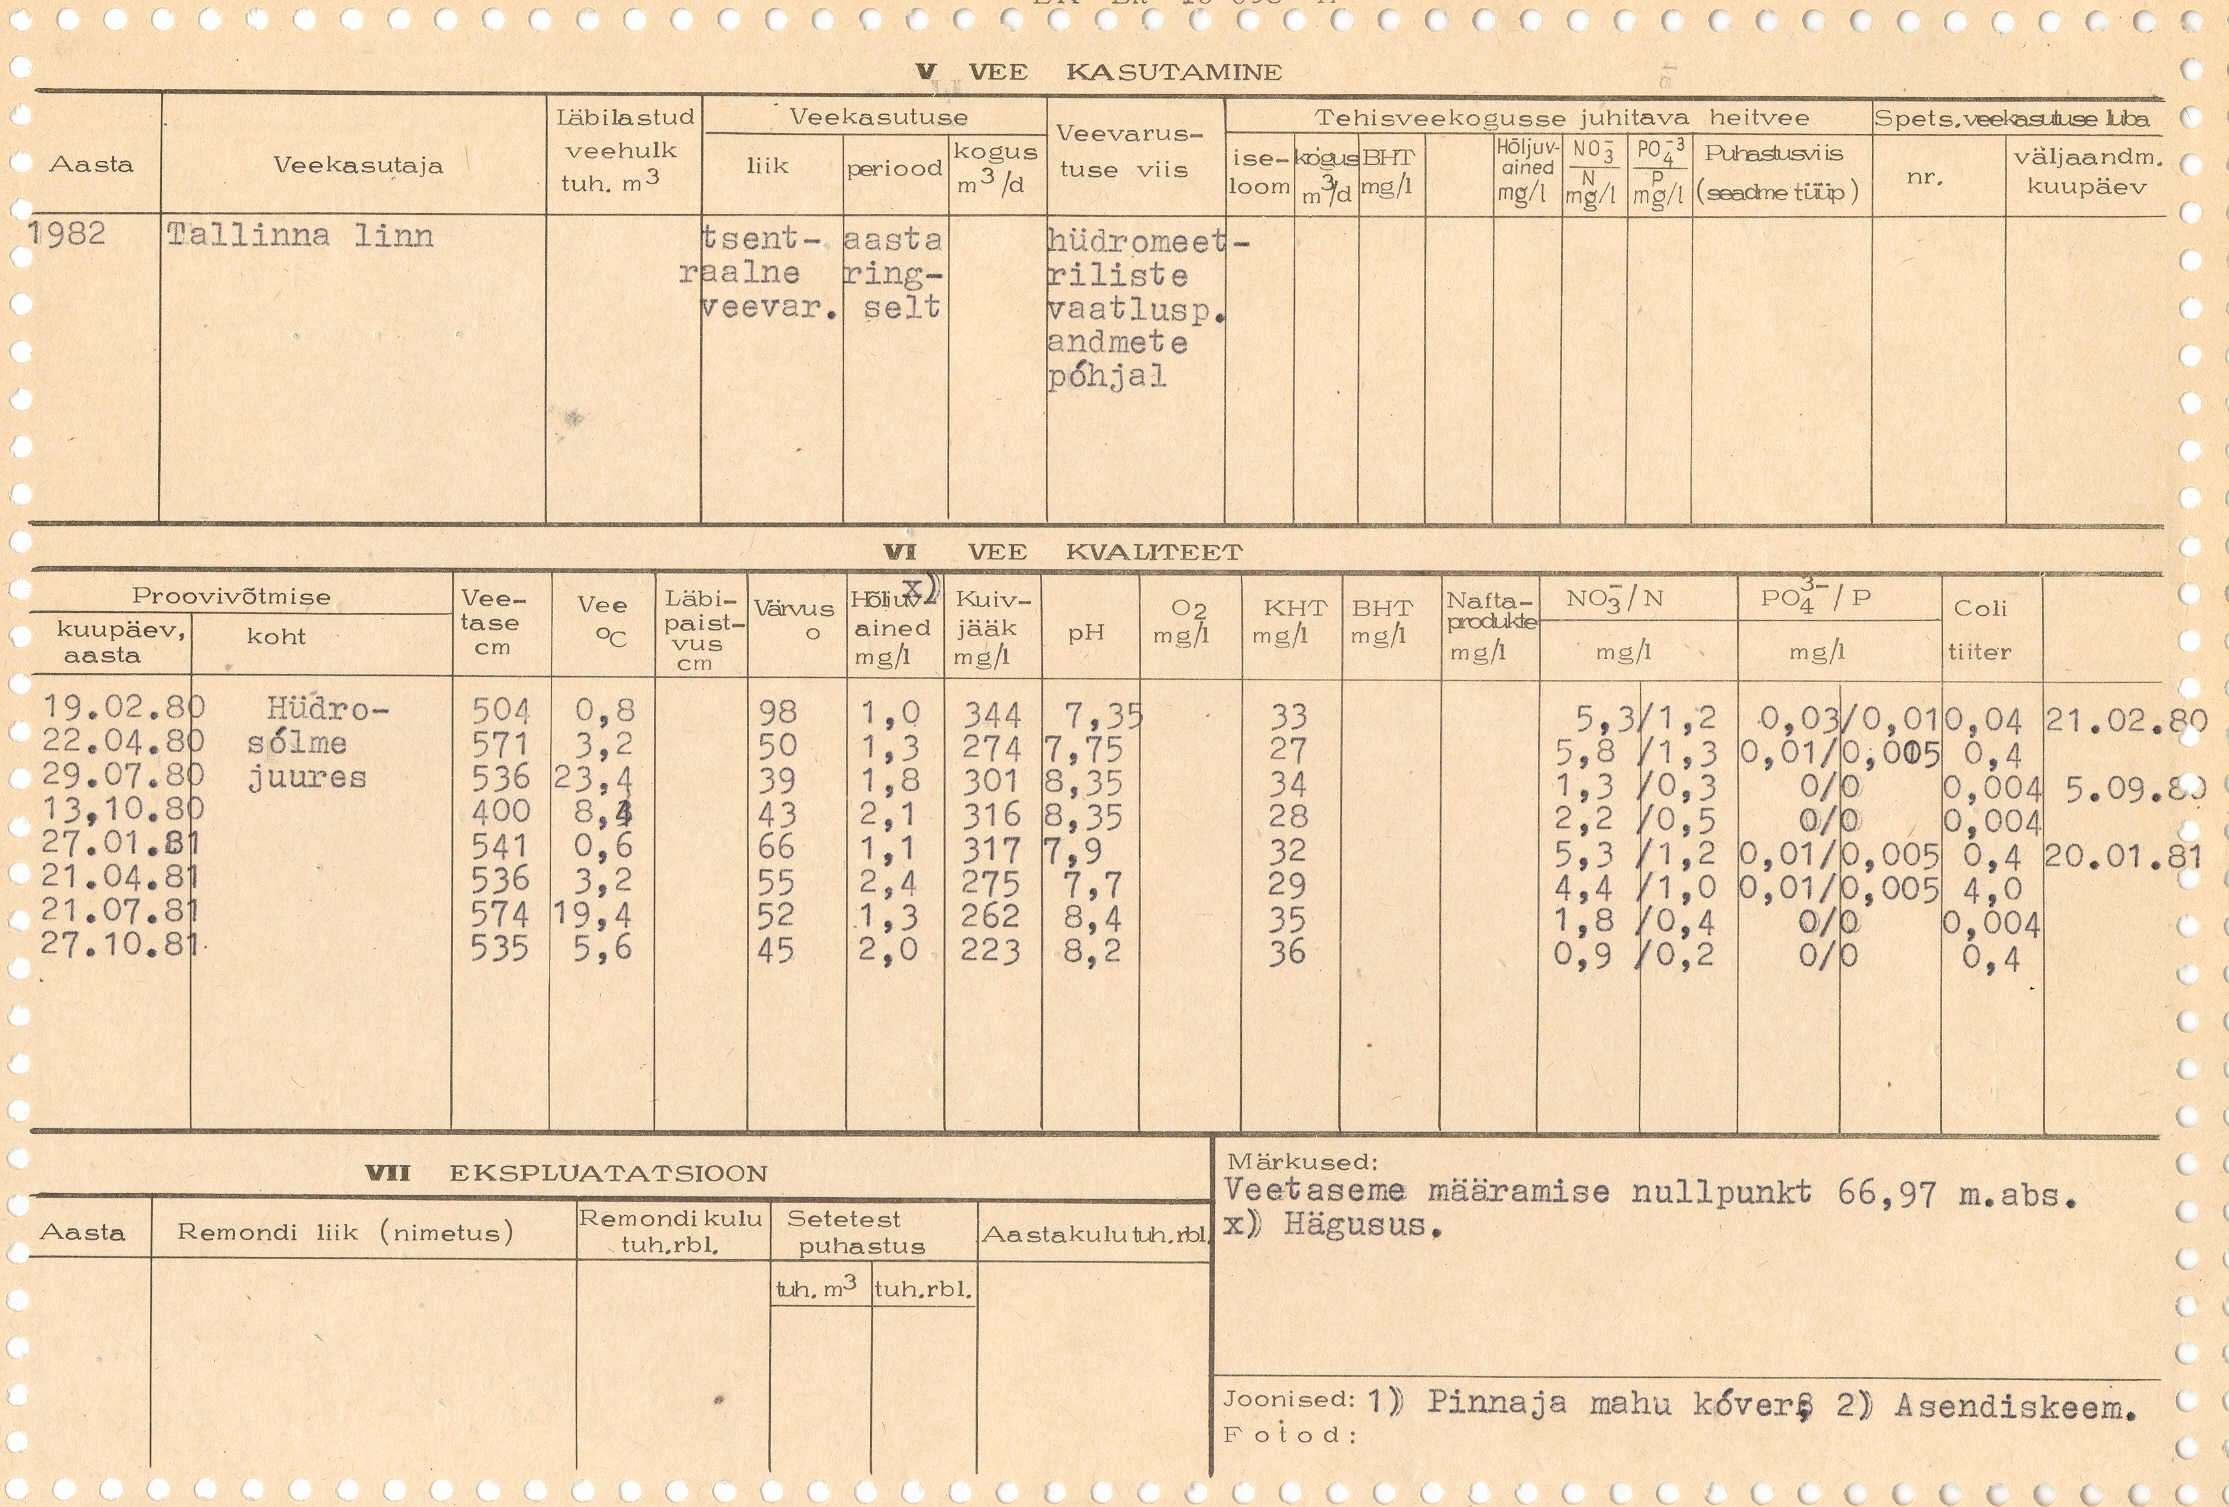 V VEE KASUTAMINE
Aasta Veekasutaja Läbilastud veehulk tuh. m³ Veekasutuse liik periood kogus m³/d Veevarus- tuse viis Tehisveekogusse juhitava heitvee ise- loom kogus m³/d BHT mg/l Hõljuv- ained mg/l NO₃⁻ N mg/l PO₄⁻³ P mg/l Puhastusviis (seadme tüüp) Spets. veekasutuse luba nr. väljaandm. kuupäev
1982 Tallinna linn tsent- aasta hüdromeet-
raalne ring- riliste
veevar. selt vaatlusp.
andmete
póhjal
VI VEE KVALITEET
Proovivõtmise kuupäev, aasta koht Vee- tase cm Vee °C Läbi- paist- vus cm Värvus ° Hõljuv- x) ained mg/l Kuiv- jääk mg/l pH O₂ mg/l KHT mg/l BHT mg/l Nafta- produkte mg/l NO₃⁻/N mg/l PO₄³⁻/P mg/l Coli tiiter
19.02.80 Hüdro- 504 0,8 98 1,0 344 7,35 33 5,3/1,2 0,03/0,01 0,04 21.02.80
22.04.80 sólme 571 3,2 50 1,3 274 7,75 27 5,8 /1,3 0,01/0,005 0,4
29.07.80 juures 536 23,4 39 1,8 301 8,35 34 1,3 /0,3 0/0 0,004 5.09.80
13,10.80 400 8,4 43 2,1 316 8,35 28 2,2 /0,5 0/0 0,004
27.01.81 541 0,6 66 1,1 317 7,9 32 5,3 /1,2 0,01/0,005 0,4 20.01.81
21.04.81 536 3,2 55 2,4 275 7,7 29 4,4 /1,0 0,01/0,005 4,0
21.07.81 574 19,4 52 1,3 262 8,4 35 1,8 /0,4 0/0 0,004
27.10.81 535 5,6 45 2,0 223 8,2 36 0,9 /0,2 0/0 0,4
VII EKSPLUATATSIOON
Aasta Remondi liik (nimetus) Remondi kulu tuh.rbl. Setetest puhastus Aastakulu tuh.rbl.
tuh. m³ tuh.rbl.
Märkused:
Veetaseme määramise nullpunkt 66,97 m.abs.
x) Hägusus.
Joonised: 1) Pinnaja mahu kóver; 2) Asendiskeem.
Fotod: